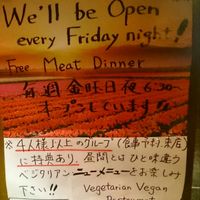 We'll be Open
every Friday night!
Free Meat Dinner
毎週金曜日夜6:30〜
オープンしています!!
※4人様以上のグループ(食事予約来店)
に特典あり、昼間とはひと味違う
ベジタリアンニューメニューをお楽しみ
下さい!!
Vegetarian Vegan
Restaurant